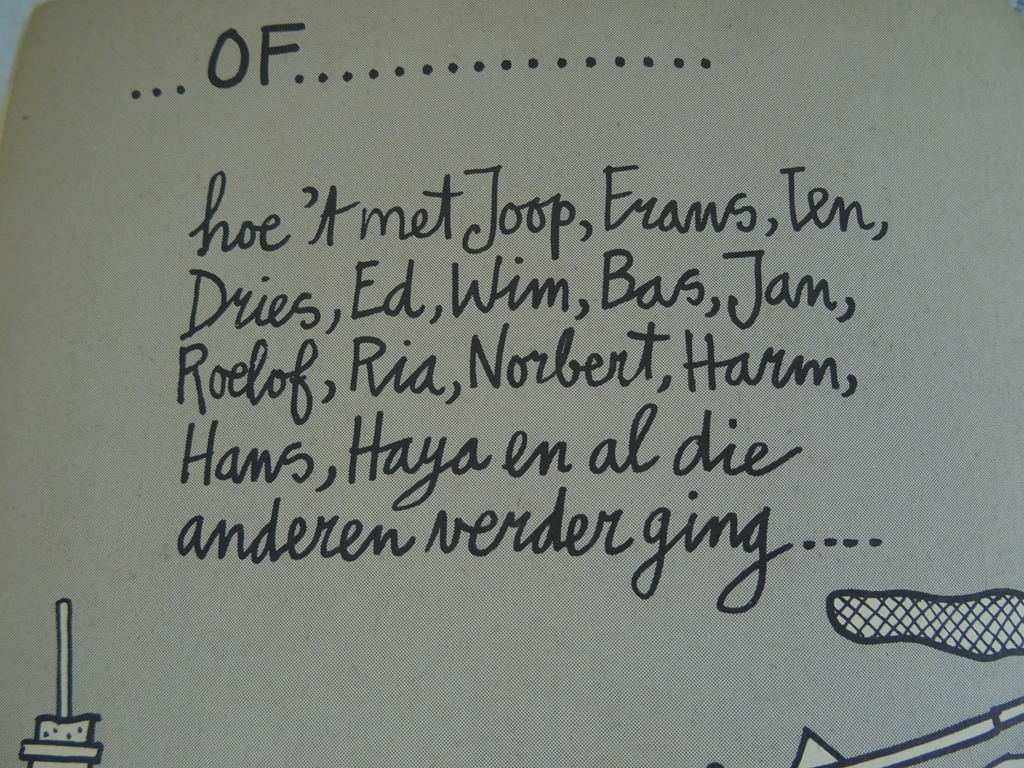 ... OF.................
hoe 't met Joop, Frans, Ten,
Dries, Ed, Wim, Bas, Jan,
Roelof, Ria, Norbert, Harm,
Hans, Haya en al die
anderen verder ging....